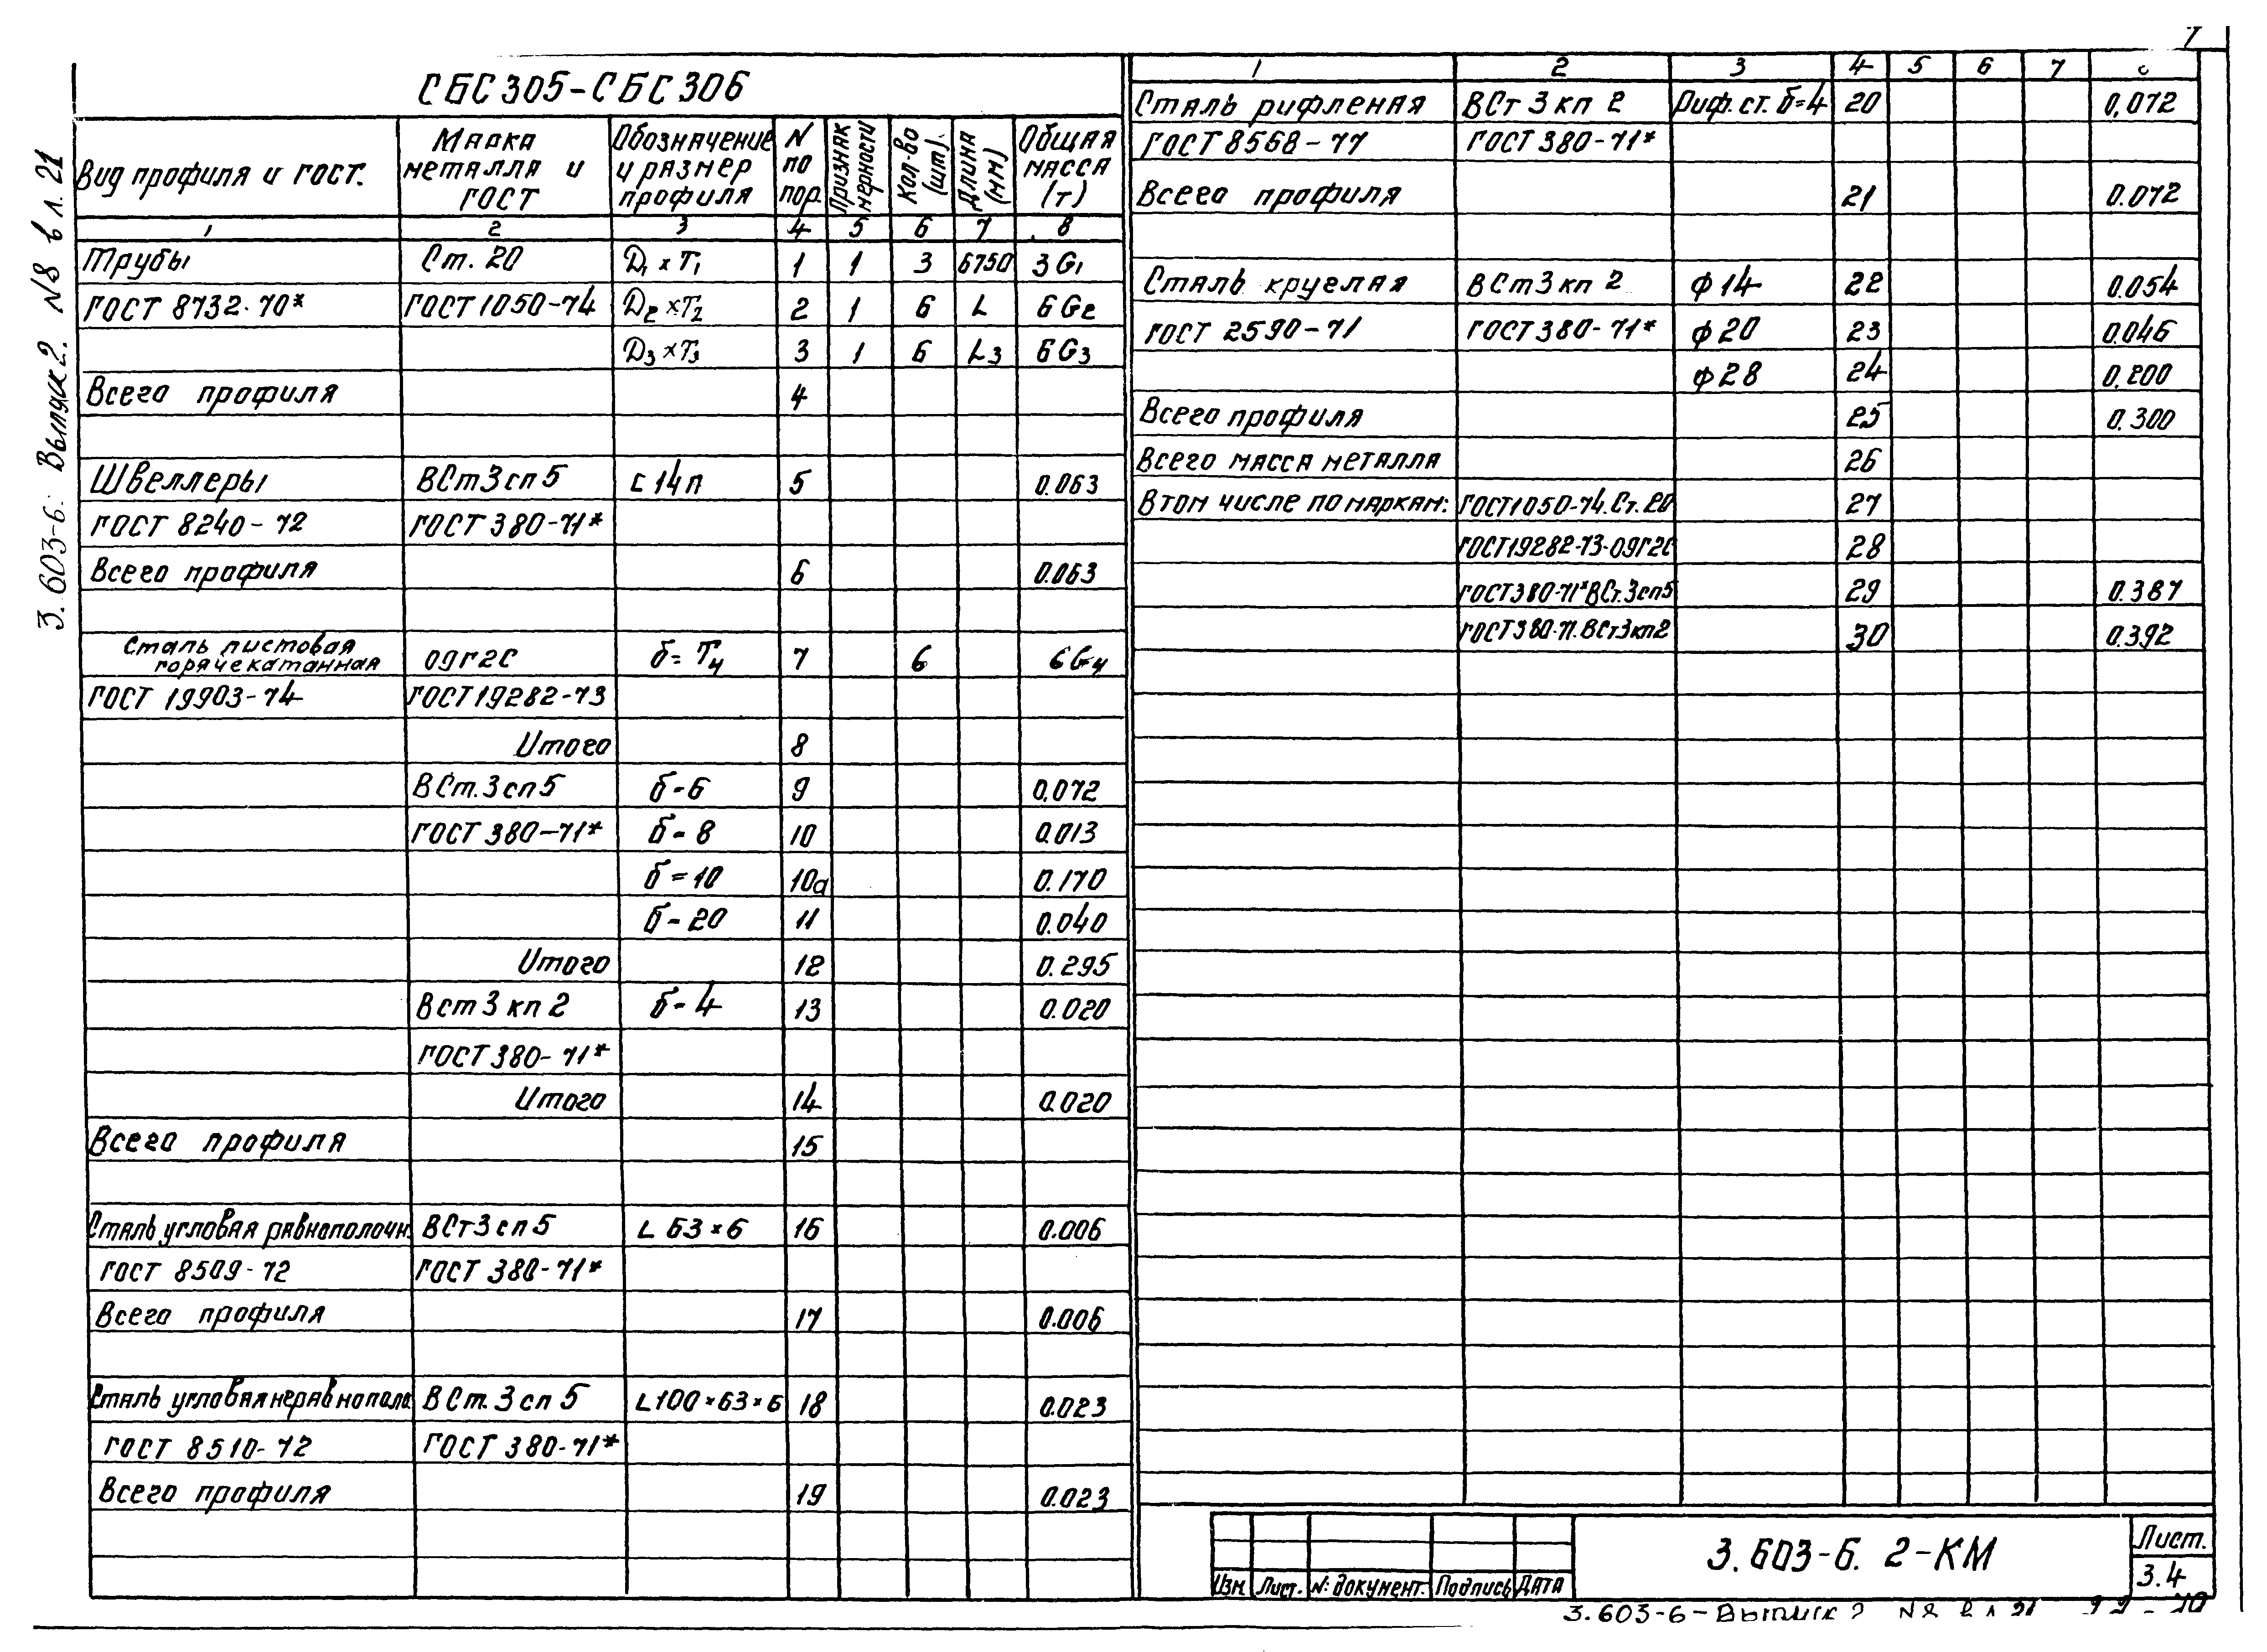 7
3.603-6. Выпуск 2. N8 в л. 21
СБС305-СБС306
Вид профиля и гост. Марка металла и ГОСТ Обозначение и размер профиля N по пор. Признак мерности Кол-во (шт). Длина (мм) Общая масса (т)
1 2 3 4 5 6 7 8
Трубы Ст. 20 D1 x T1 1 1 3 6750 3G1
ГОСТ 8732-70* ГОСТ 1050-74 D2 x T2 2 1 6 L 6G2
D3 x T3 3 1 6 L3 6G3
Всего профиля 4
Швеллеры ВСт3сп5 [ 14п 5 0.063
ГОСТ 8240-72 ГОСТ 380-71*
Всего профиля 6 0.063
Сталь листовая
горячекатанная 09Г2С б= T4 7 6 6G4
ГОСТ 19903-74 ГОСТ 19282-73
Итого 8
ВСт.3сп5 б-6 9 0,072
ГОСТ 380-71* б-8 10 0.013
б=10 10а 0.170
б-20 11 0.040
Итого 12 0.295
Вст3кп2 б-4 13 0.020
ГОСТ 380-71*
Итого 14 0.020
Всего профиля 15
Сталь угловая равнополочн. ВСт3сп5 L 63×6 16 0.006
ГОСТ 8509-72 ГОСТ 380-71*
Всего профиля 17 0.006
Сталь угловая неравнопола ВСт.3сп5 L100×63×6 18 0.023
ГОСТ 8510-72 ГОСТ 380-71*
Всего профиля 19 0.023
1 2 3 4 5 6 7
Сталь рифленая ВСт3кп2 Риф.ст. б=4 20 0,072
ГОСТ 8568-77 ГОСТ 380-71*
Всего профиля 21 0.072
Сталь круглая ВСт3кп2 ф14 22 0.054
ГОСТ 2590-71 ГОСТ 380-71* ф20 23 0.046
ф28 24 0.200
Всего профиля 25 0.300
Всего масса металла 26
В том числе по маркам: ГОСТ1050-74.Ст.20 27
ГОСТ19282-73-09Г2С 28
ГОСТ380-71*ВСт.3сп5 29 0.387
ГОСТ380-71.ВСт3кп2 30 0.392
3.603-6. 2-КМ
Лист.
3.4
Изм Лист. N: документ. Подпись Дата
3.603-6-Выпуск 2 N8 в л 21